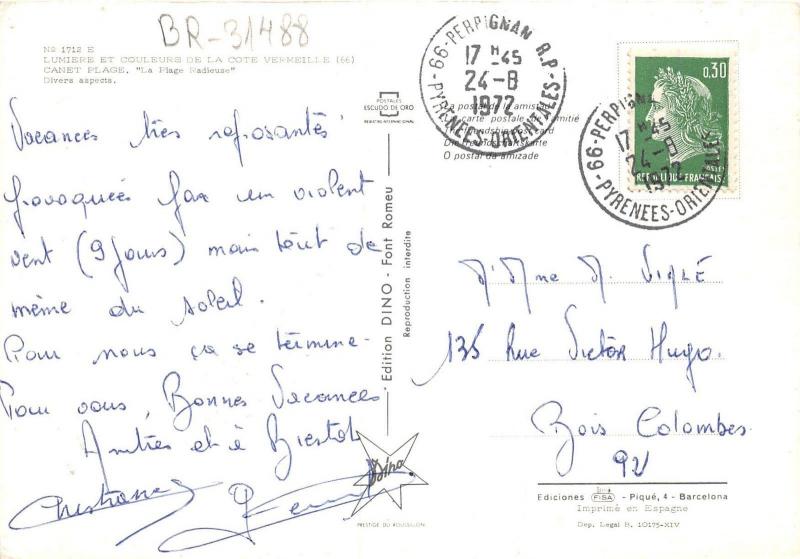 BR-31488
No 1712 E
LUMIERE ET COULEURS DE LA COTE VERMEILLE (66)
CANET PLAGE, "La Plage Radieuse"
Divers aspects.
POSTALES
ESCUDO DE ORO
REGISTRO INTERNACIONAL
66-PERPIGNAN R.P.
17 H 45
24-8
1972
PYRENEES-ORIENTALES
La postal de la amistad
La carte postale de l'amitié
The friendship post card
Die Freundschaftskarte
O postal da amizade
0,30
POSTES
REPUBLIQUE FRANÇAISE
66-PERPIGNAN
17 H 45
24-8
1972
PYRENEES-ORIENTALES
Vacances très reposantes
provoquées par un violent
vent (9 jours) mais tout de
même du soleil.
Pour nous ça se termine.
Pour vous, Bonnes Vacances
Amitiés et à Bientôt
Christiane
Edition DINO - Font Romeu
Reproduction interdite
M. Mme M. VIGLÉ
135 Rue Victor Hugo.
Bois Colombes
92
Dino
PRESTIGE DU ROUSSILLON
Ediciones FISA - Piqué, 4 - Barcelona
Imprimé en Espagne
Dep. Legal B. 10175-XIV